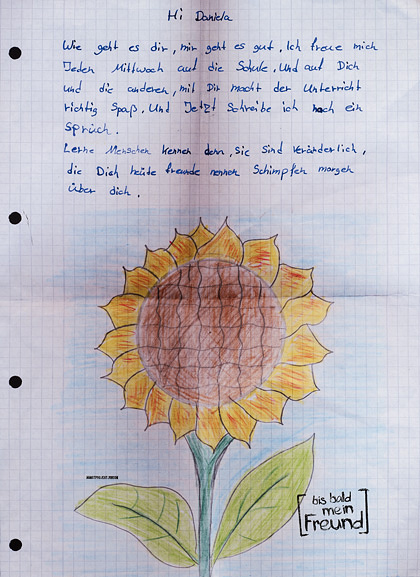 Hi Daniela
Wie geht es dir, mir geht es gut, Ich freue mich
Jeden Mittwoch auf die Schule, Und auf Dich
und die anderen, mit Dir macht der Unterricht
richtig Spaß, Und Jetzt Schreibe ich noch ein
Spruch.
Lerne Menschen kennen denn, Sie Sind Veränderlich,
die Dich heute freunde nennen Schimpfen morgen
über dich.
bis bald
mein
Freund